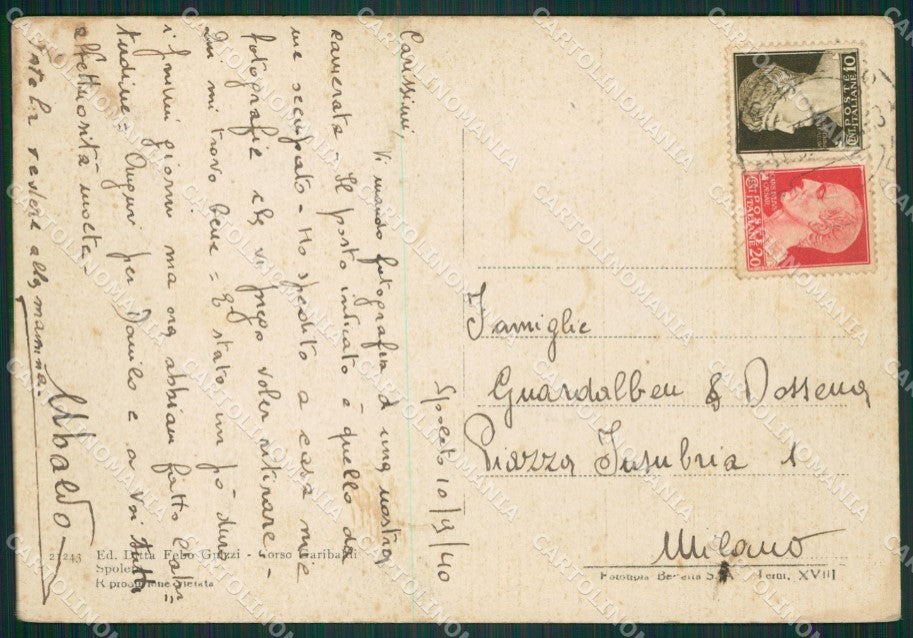 Spoleto 10/9/40
Carissimi,
Vi mando fotografia d una nostra
camerata. Il posto indicato è quello da
me occupato. Ho spedito a casa mie
fotografie che vi prego voler ritirare.
Qui mi trovo bene = È stato un pò duro
i primi giorni ma ora abbiam fatto l'abi=
tudine = Auguri per Danilo e a voi tutti
affettuosità molte.
Ubaldo
alla mamma.
Famiglie
Guardalben & Dossena
Piazza Insubria 1
Milano
POSTE ITALIANE 10
POSTE ITALIANE 20
21243 Ed. Ditta Febo Grizzi - Corso Garibaldi
Spoleto
Riproduzione vietata
Fototipia S.A. Terni, XVIII
CARTOLINOMANIA